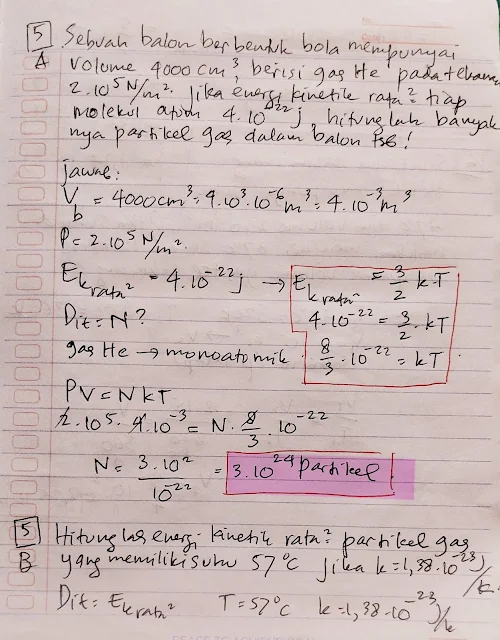 5 Sebuah balon berbentuk bola mempunyai
A volume 4000 cm³, berisi gas He pada tekanan
2.10⁵ N/m². Jika energi kinetik rata² tiap
molekul atom 4.10⁻²² j, hitunglah banyak
nya partikel gas dalam balon tsb!
jawab:
V_b = 4000 cm³ = 4.10³.10⁻⁶ m³ = 4.10⁻³ m³
P = 2.10⁵ N/m².
Ek rata² = 4.10⁻²² j → Ek rata² = 3/2 k.T
4.10⁻²² = 3/2 . kT
Dit = N?
gas He → monoatomik. 8/3 . 10⁻²² = kT
PV = NkT
2.10⁵. 4.10⁻³ = N. 8/3 . 10⁻²²
N = 3.10²/10⁻²² = 3.10²⁴ partikel
5 Hitunglah energi kinetik rata² partikel gas
B yang memiliki suhu 57°C jika k = 1,38.10⁻²³ J/k.
Dit = Ek rata² T = 57°C k = 1,38.10⁻²³ J/k